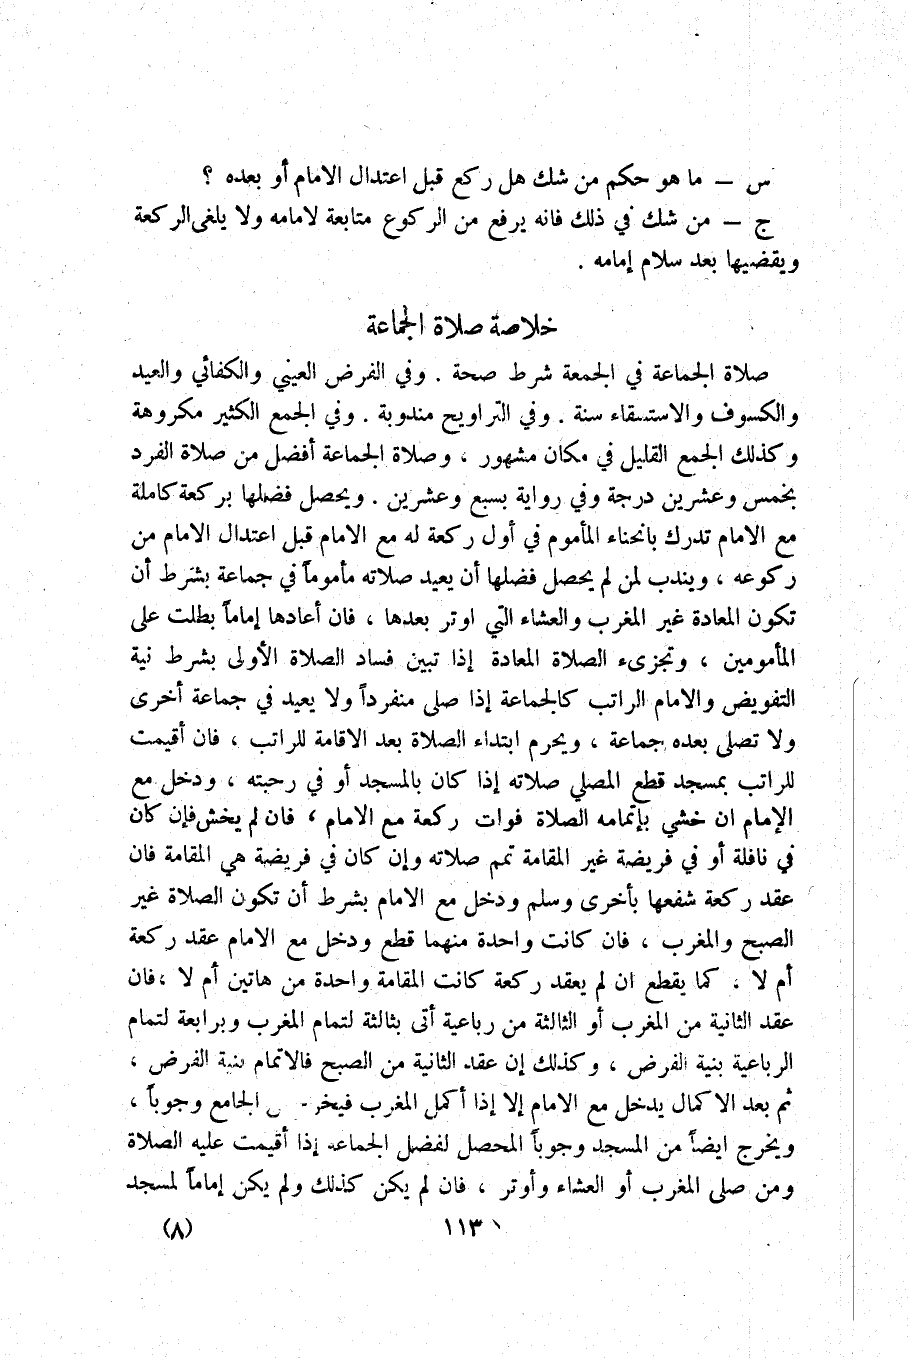 س — ما هو حكم من شك هل ركع قبل اعتدال الامام أو بعده ؟
ج — من شك في ذلك فانه يرفع من الركوع متابعة لامامه ولا يلغى الركعة
ويقضيها بعد سلام إمامه .
خلاصة صلاة الجماعة
صلاة الجماعة في الجمعة شرط صحة . وفي الفرض العيني والكفائي والعيد
والكسوف والاستسقاء سنة . وفي التراويح مندوبة . وفي الجمع الكثير مكروهة
وكذلك الجمع القليل في مكان مشهور ، وصلاة الجماعة أفضل من صلاة الفرد
بخمس وعشرين درجة وفي رواية بسبع وعشرين . ويحصل فضلها بركعة كاملة
مع الامام تدرك بانحناء المأموم في أول ركعة له مع الامام قبل اعتدال الامام من
ركوعه ، ويندب لمن لم يحصل فضلها أن يعيد صلاته مأموماً في جماعة بشرط أن
تكون المعادة غير المغرب والعشاء التي اوتر بعدها ، فان أعادها إماماً بطلت على
المأمومين ، وتجزىء الصلاة المعادة إذا تبين فساد الصلاة الأولى بشرط نية
التفويض والامام الراتب كالجماعة إذا صلى منفرداً ولا يعيد في جماعة أخرى
ولا تصلى بعده جماعة ، ويحرم ابتداء الصلاة بعد الاقامة للراتب ، فان أقيمت
للراتب بمسجد قطع المصلي صلاته إذا كان بالمسجد أو في رحبته ، ودخل مع
الإمام ان خشي بإتمامه الصلاة فوات ركعة مع الامام ، فان لم يخش فإن كان
في نافلة أو في فريضة غير المقامة تمم صلاته وإن كان في فريضة هي المقامة فان
عقد ركعة شفعها بأخرى وسلم ودخل مع الامام بشرط أن تكون الصلاة غير
الصبح والمغرب ، فان كانت واحدة منهما قطع ودخل مع الامام عقد ركعة
أم لا ، كما يقطع ان لم يعقد ركعة كانت المقامة واحدة من هاتين أم لا ، فان
عقد الثانية من المغرب أو الثالثة من رباعية أتى بثالثة لتمام المغرب وبرابعة لتمام
الرباعية بنية الفرض ، وكذلك إن عقد الثانية من الصبح فالاتمام بنية الفرض ،
ثم بعد الاكمال يدخل مع الامام إلا إذا أكمل المغرب الجامع وجوباً ،
ويخرج ايضاً من المسجد وجوباً المحصل لفضل الجماعة إذا أقيمت عليه الصلاة
ومن صلى المغرب أو العشاء وأوتر ، فان لم يكن كذلك ولم يكن إماماً لمسجد
١١٣ (٨)